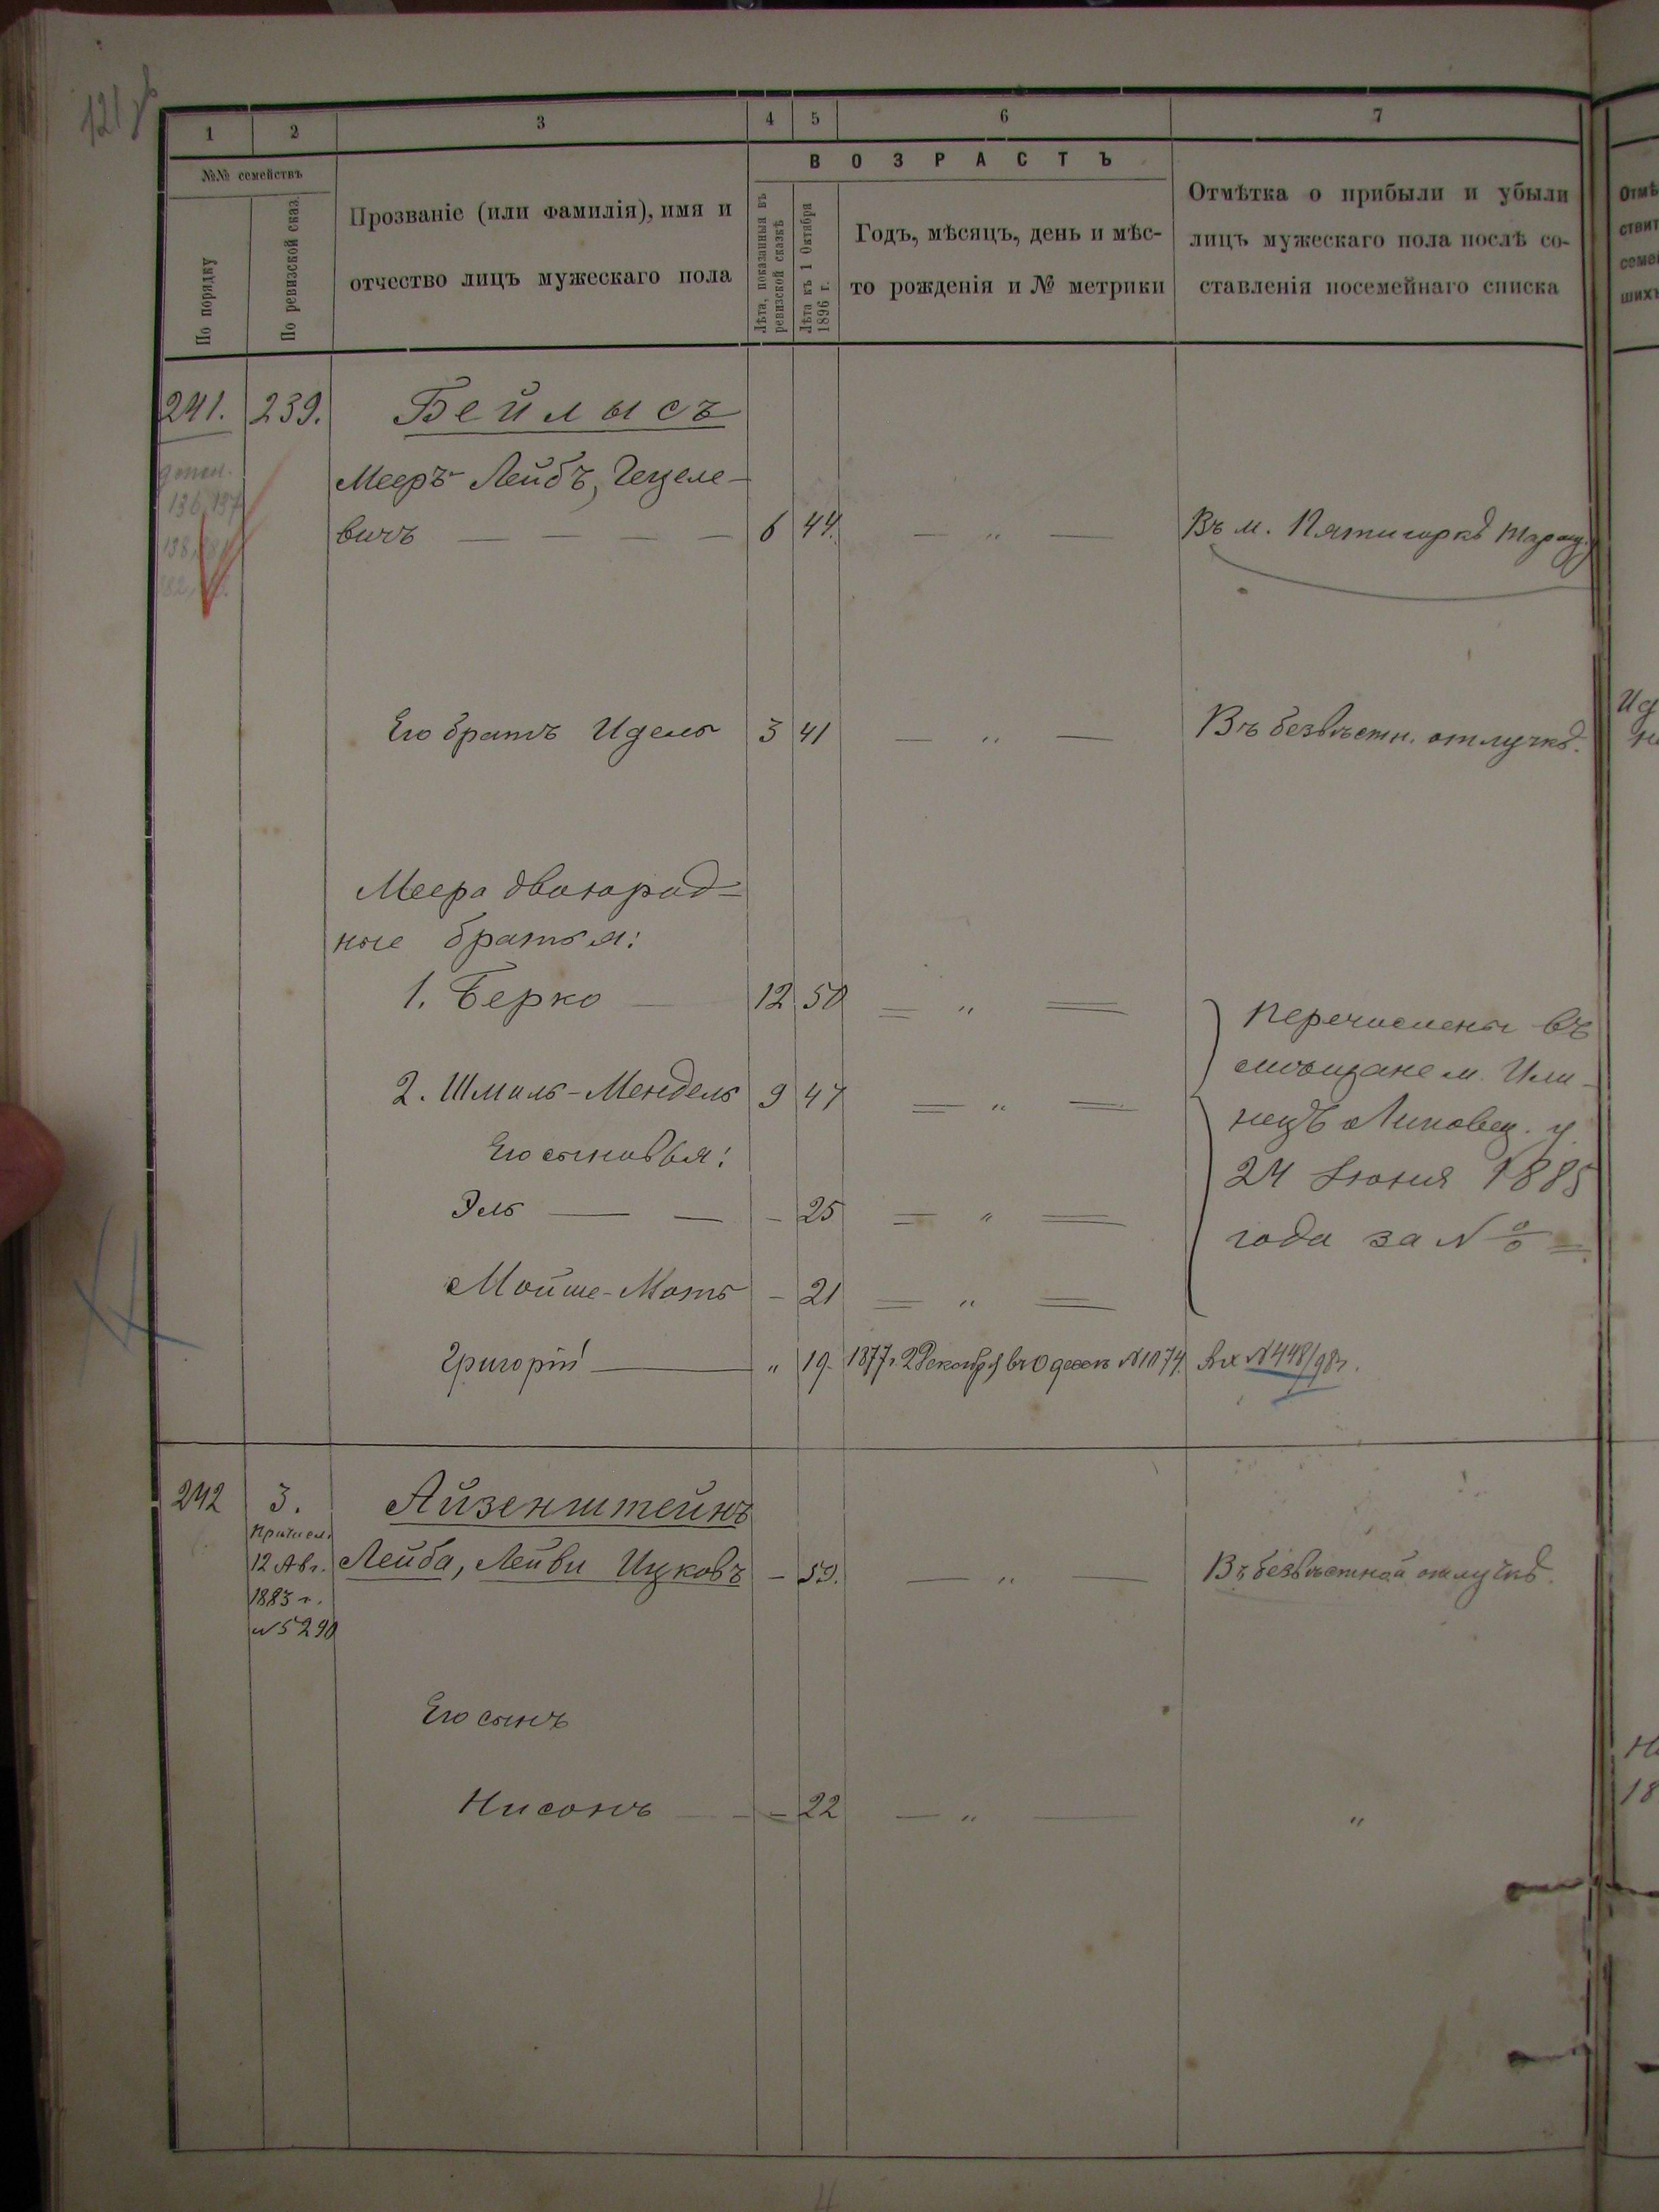 1 2 3 4 5 6 7
№№ семействъ
По порядку
По ревизской сказ.
Прозваніе (или фамилія), имя и
отчество лицъ мужескаго пола
ВОЗРАСТЪ
Лѣта, показанныя въ
ревизской сказкѣ
Лѣта къ 1 Октября
1896 г.
Годъ, мѣсяцъ, день и мѣс-
то рожденія и № метрики
Отмѣтка о прибыли и убыли
лицъ мужескаго пола послѣ со-
ставленія посемейнаго списка
241. 239. Бейлысъ
Мееръ-Лейбъ, Гецеле-
вичъ — — — — 6 44. — „ — Въ м. Пятигоркѣ Таращ.
Его братъ Идель 3 41 — „ — Въ безвѣстн. отлучкѣ.
Меера двоюрод=
ные братья:
1. Берко — 12 50 = „ =
2. Шмиль-Мендель 9 47 = „ =
Его сыновья:
Эль — — - 25 = „ =
Мойше-Моть - 21 = „ =
Перечислены въ
мѣщане м. Или-
нецъ Липовец. у.
24 Іюня 1885
года за №
Григорій — „ 19. 1877 г. 2 Декабря въ Одессѣ №1074. Вх №448/98 г.
242 3. Айзенштейнъ
Причисл.
12 Авг.
1883 г.
№5290
Лейба, Лейви Ицковъ - 59. — „ — Въ безвѣстной отлучкѣ.
Его сынъ
Нисонъ — - 22 — „ — „